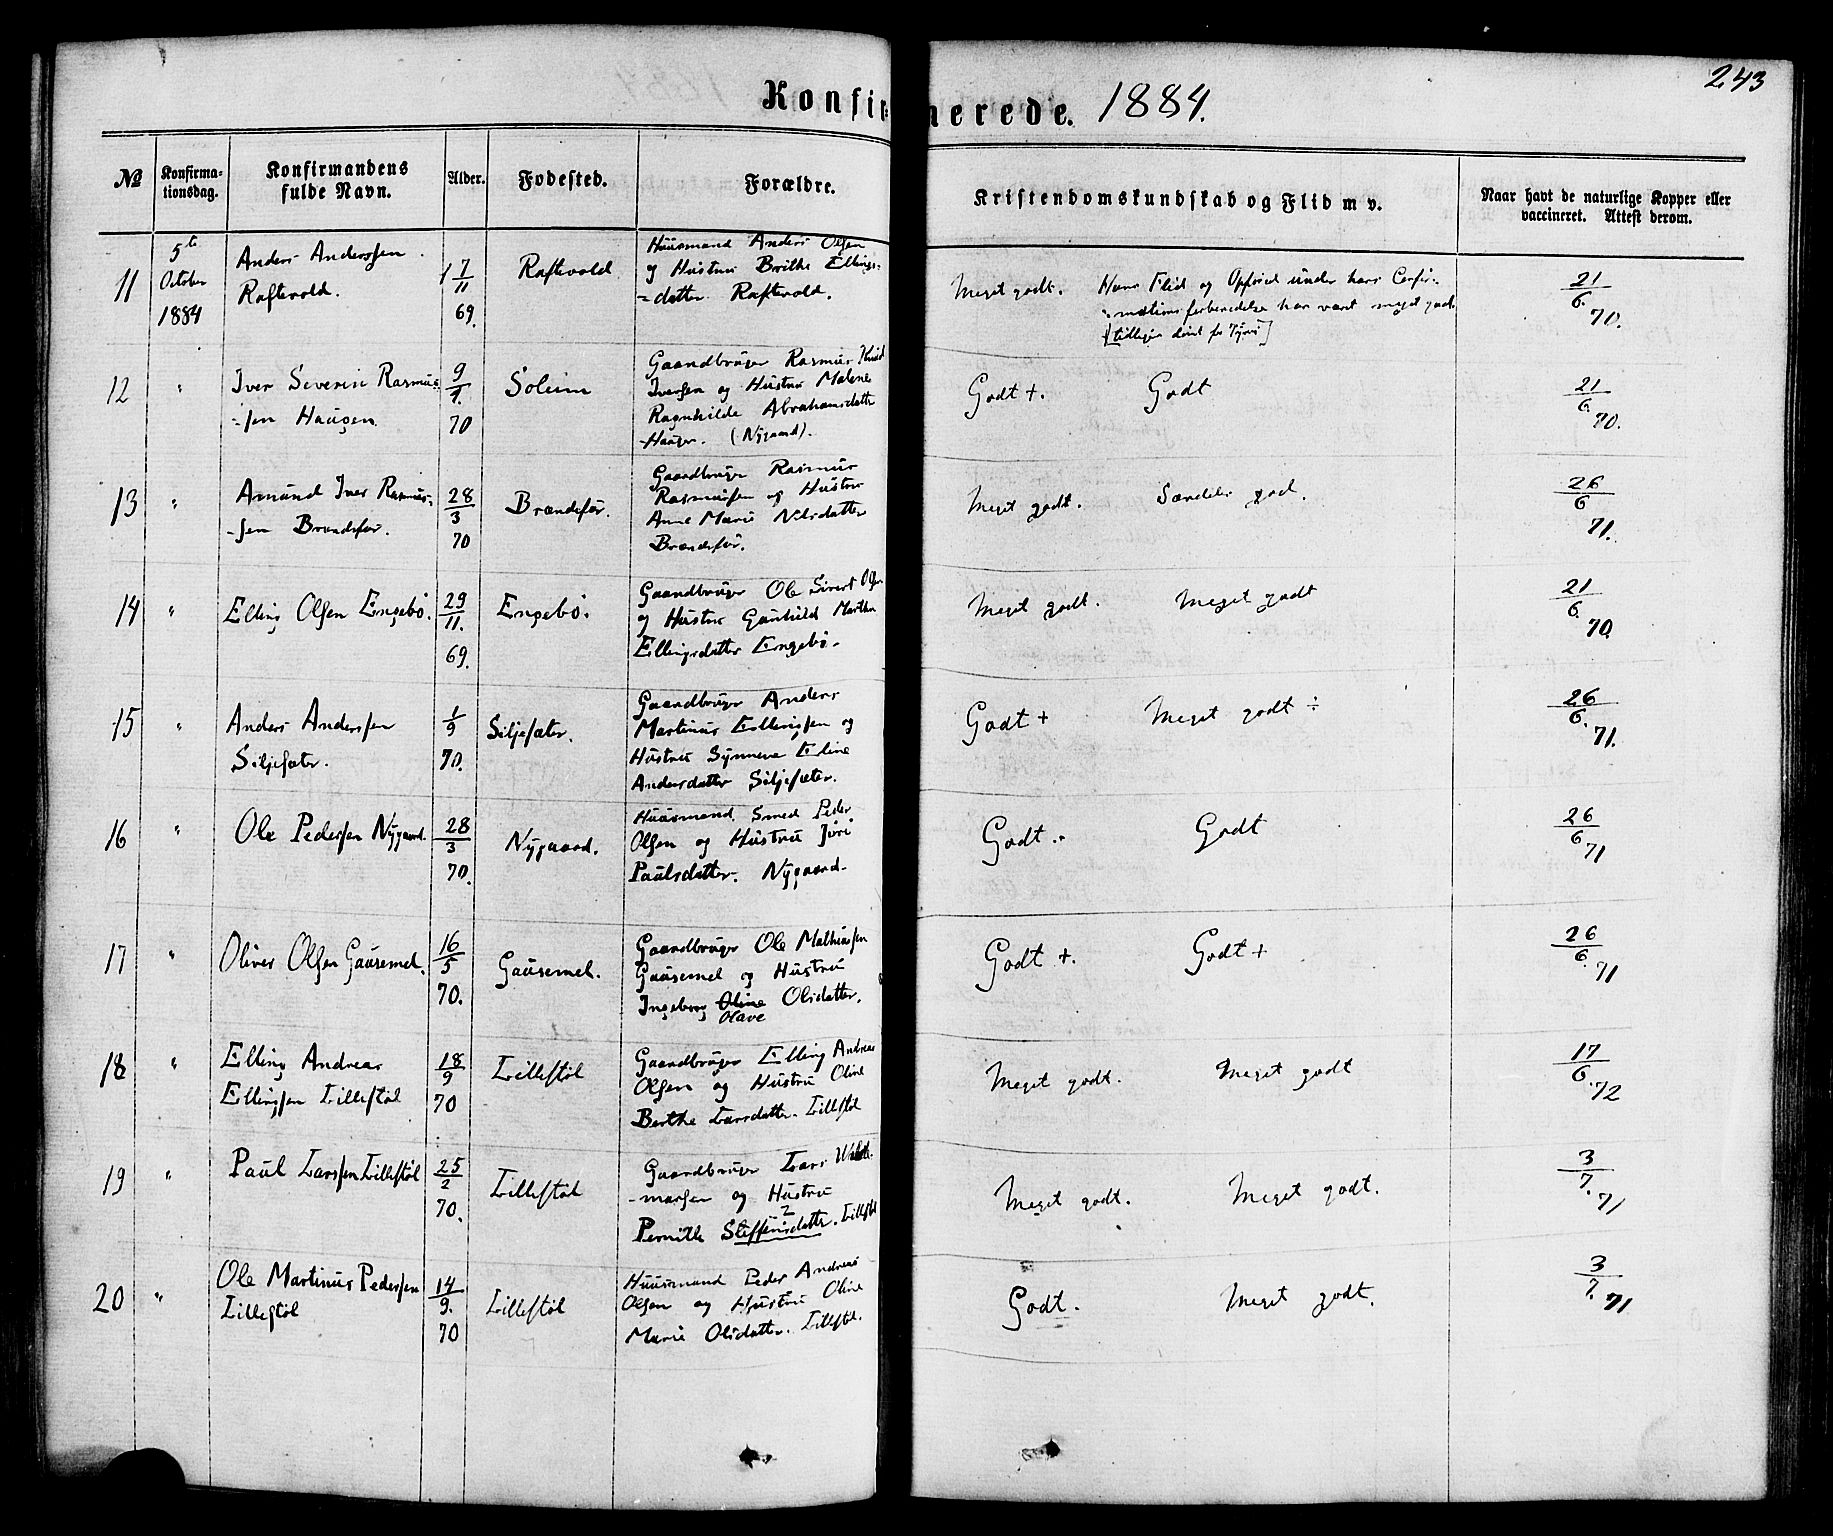 243
Konfirmerede. 1884.
№ Konfirma-tionsdag. Konfirmandens fulde Navn. Alder. Fodested. Forældre. Kristendomskundskab og Flid m v. Naar havt de naturlige Kopper eller vaccineret. Attest derom.
11 5te October 1884
Anders Anderssen
Raftevold.
7/11 69.
Raftevold
Huusmand Anders Olsen
og Hustru Brithe Ellings-
=datter Raftevold.
Meget godt. Hans Flid og Opførsel under hans Confir-
mationsforberedelse har været meget god.
21/6. 70.
12 "
Iver Severin Rasmus-
-sen Haugen.
9/9. 70
Soleim
Gaardbruger Rasmus Knud
Iversen og Hustru Malene
Ragnhilde Abrahamsdatter
Haugen. (Nygaard).
Godt +. Godt
21/6. 70.
13 "
Amund Iver Rasmus-
-sen Brandsfor.
28/3 70
Brandsfor.
Gaardbruger Rasmus
Rasmussen og Hustru
Anne Marie Nilsdatter
Brandsfor.
Meget godt. Særdeles god.
26/6 71.
14 "
Elling Olsen Engebö.
29/11. 69.
Engebö.
Gaardbruger Ole Sivert Olsen
og Hustru Gunhild Marthe
Ellingsdatter Engebö.
Meget godt. Meget godt
21/6. 70.
15 "
Anders Anderssen
Siljesæter.
1/9 70.
Siljesæter.
Gaardbruger Anders
Martinus Ellingssen og
Hustru Synneve Eline
Andersdatter Siljesæter.
Godt + Meget godt ÷
26/6. 71.
16 "
Ole Pedersen Nygaard.
28/3 70.
Nygaard.
Huusmand Smed Peder
Olsen og Hustru Jüri
Paulsdatter. Nygaard-
Godt. Godt
26/6. 71
17 "
Oliver Olsen Gausemel.
16/5 70.
Gausemel.
Gaardbruger Ole Mathiassen
Gausemel og Hustru
Ingeborg Oline Olsdatter.
Olave
Godt +. Godt +
26/6. 71
18 "
Elling Andreas
Ellingsen Lillestöl
18/9 70
Lillestöl
Gaardbruger Elling Andreas
Olsen og Hustru Oline
Berthe Larsdatter. Lillestöl
Meget godt. Meget godt
17/6. 72
19 "
Paul Larssen Lillestöl
25/2 70.
Lillestöl
Gaardbruger Lars
-marsen og Hustru
Pernille Steffensdatter. Lillestöl
Meget godt. Meget godt.
3/7. 71
20 "
Ole Martinus Pedersen
Lillestöl
14/9. 70
Lillestöl
Huusmand Peder Andreas
Olsen og Hustru Oline
Marie Olsdatter. Lillestöl.
Godt. Meget godt.
3/7. 71